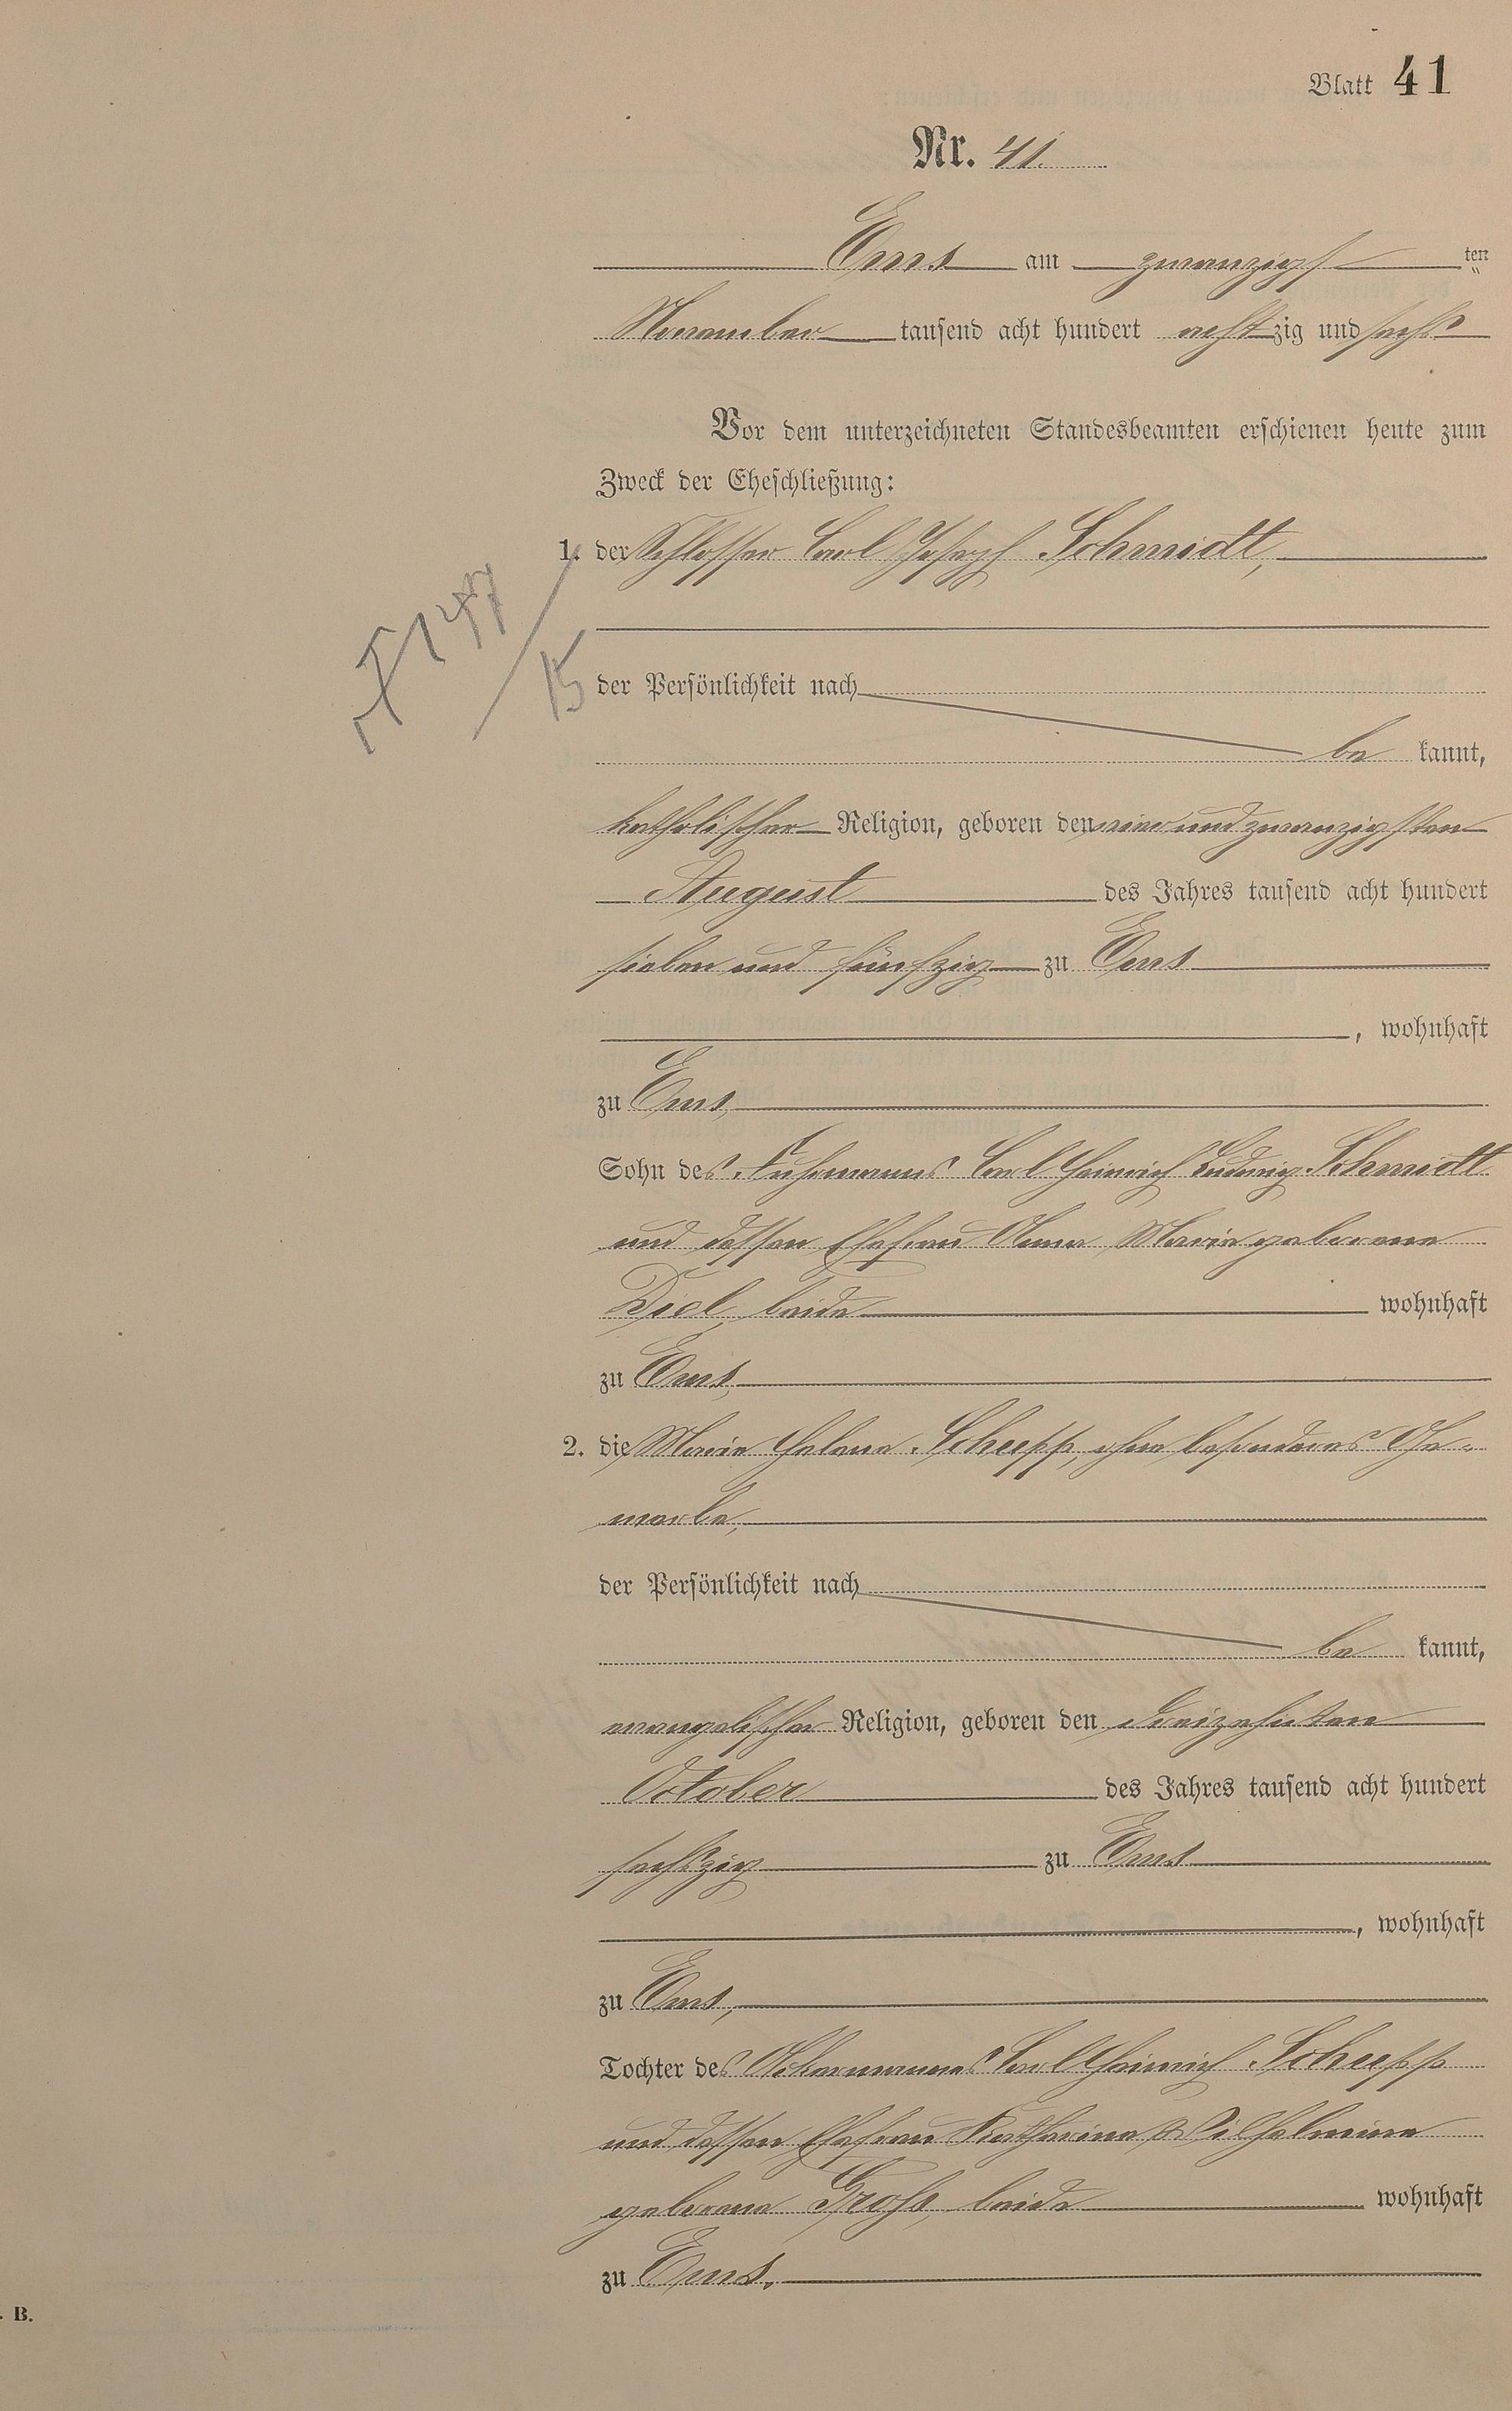 Blatt 41
Nr. 41.
Ems am zwanzigsten
November tausend acht hundert achtzig und sechs
Vor dem unterzeichneten Standesbeamten erschienen heute zum
Zweck der Eheschließung:
1. der Schlosser Carl Joseph Schmidt,
der Persönlichkeit nach
be kannt,
katholischer Religion, geboren den vier und zwanzigsten
August des Jahres tausend acht hundert
sieben und fünfzig zu Ems
, wohnhaft
zu Ems,
Sohn des Fuhrmanns Carl Heinrich Ludwig Schmidt
und dessen Ehefrau Anna Maria geborene
Diel, beide wohnhaft
zu Ems,
2. die Marie Helene Schupp, ohne besonderes Ge-
werbe,
der Persönlichkeit nach
be kannt,
evangelischer Religion, geboren den dreizehnten
October des Jahres tausend acht hundert
sechszig zu Ems
, wohnhaft
zu Ems,
Tochter des Ackermannes Carl Heinrich Schupp
und dessen Ehefrau Katharine Wilhelmine
geborene Groß, beide wohnhaft
zu Ems.
B.